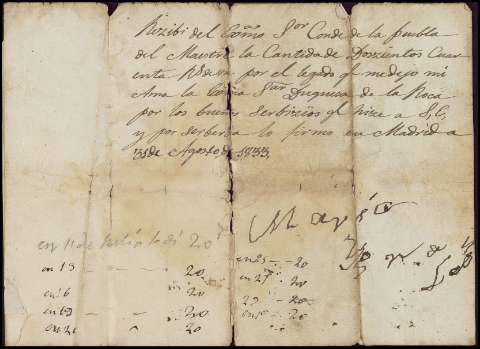 Rezibi del Exᵐᵒ Sᵒʳ Conde de la Puebla
del Maestre la Cantidade Doszientos Cuar
enta Rs de von por el legado q̃ me dejo mi
Ama la Exma Sra Duquesa de la Roca
por los buenos serbizios q̃ hize a S,E,
y por ser berda lo firmo en Madrid a
31 de Agosto de 1833,
Maria
en 11 de Julio le di 20
en 13 - - - 20
en 16 20
en 19 - - 20
en 21 20
en 25 - - 20
en 27 20
29 - 20
20